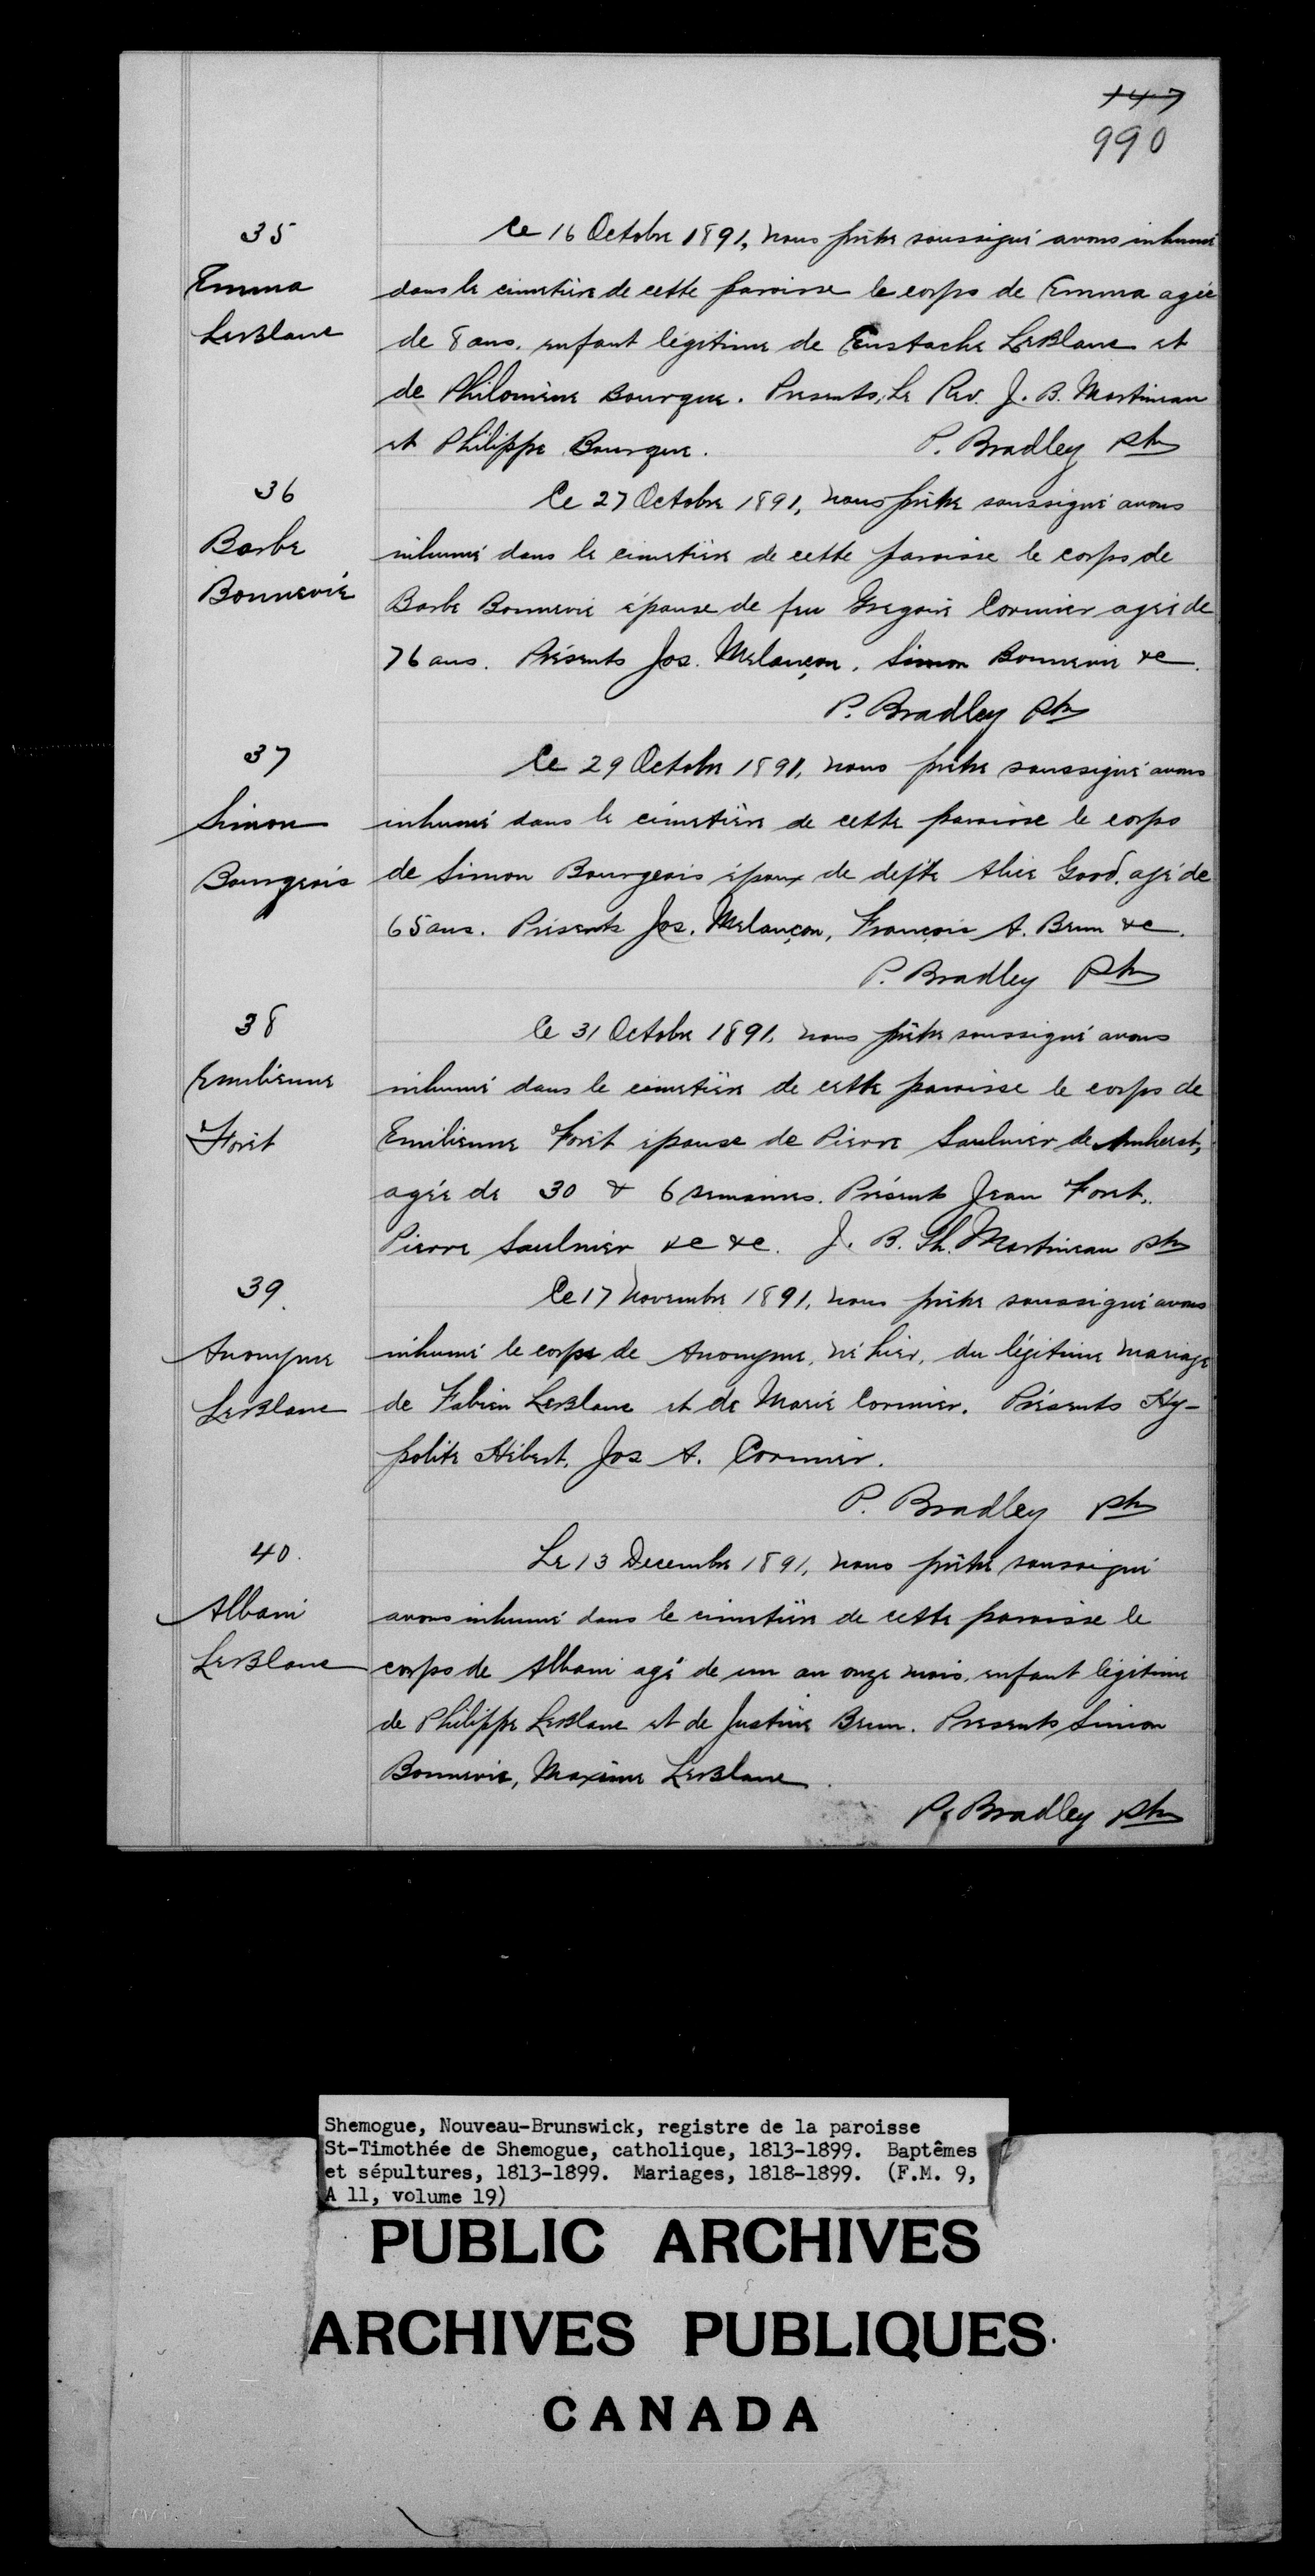 147
990
35
Emma
LeBlanc
Ce 16 Octobre 1891, nous prêtre soussigné avons inhumé
dans le cimetière de cette paroisse le corps de Emma agée
de 8 ans, enfant légitime de Eustache LeBlanc et
de Philomène Bourque. Presents, Le Rev. J. B. Martineau
et Philippe Bourque. P. Bradley Ptre
36
Barbe
Bonnevie
Ce 27 Octobre 1891, nous prêtre soussigné avons
inhumé dans le cimetière de cette paroisse le corps de
Barbe Bonnevie épouse de feu Gregoire Cormier agée de
76 ans. Présents Jos. Melançon, Simon Bonnevie &c.
P. Bradley Ptre
37
Simon
Bourgeois
Ce 29 Octobre 1891, nous prêtre soussigné avons
inhumé dans le cimetière de cette paroisse le corps
de Simon Bourgeois époux de defte Alice Good, agé de
65 ans. Présents Jos. Melançon, François A. Brun &c.
P. Bradley Ptre
38
Emilienne
Forêt
Ce 31 Octobre 1891, nous prêtre soussigné avons
inhumé dans le cimetière de cette paroisse le corps de
Emilienne Forêt épouse de Pierre Saulnier de Amherst,
agée de 30 & 6 semaines. Présents Jean Foret,
Pierre Saulnier &c &c. J. B. Th. Martineau Ptre
39.
Anonyme
LeBlanc
Ce 17 Novembre 1891, nous prêtre soussigné avons
inhumé le corps de Anonyme, né hier, du légitime mariage
de Fabien LeBlanc et de Marie Cormier. Présents Hy-
polite Hébert, Jos A. Cormier.
P. Bradley Ptre
40.
Albani
LeBlanc
Le 13 Decembre 1891, nous prêtre soussigné
avons inhumé dans le cimetière de cette paroisse le
corps de Albani agé de un an onze mois, enfant légitime
de Philippe LeBlanc et de Justine Brun. Presents Simon
Bonnevie, Maxime LeBlanc.
P. Bradley Ptre
Shemogue, Nouveau-Brunswick, registre de la paroisse
St-Timothée de Shemogue, catholique, 1813-1899. Baptêmes
et sépultures, 1813-1899. Mariages, 1818-1899. (F.M. 9,
A 11, volume 19)
PUBLIC ARCHIVES
ARCHIVES PUBLIQUES
CANADA